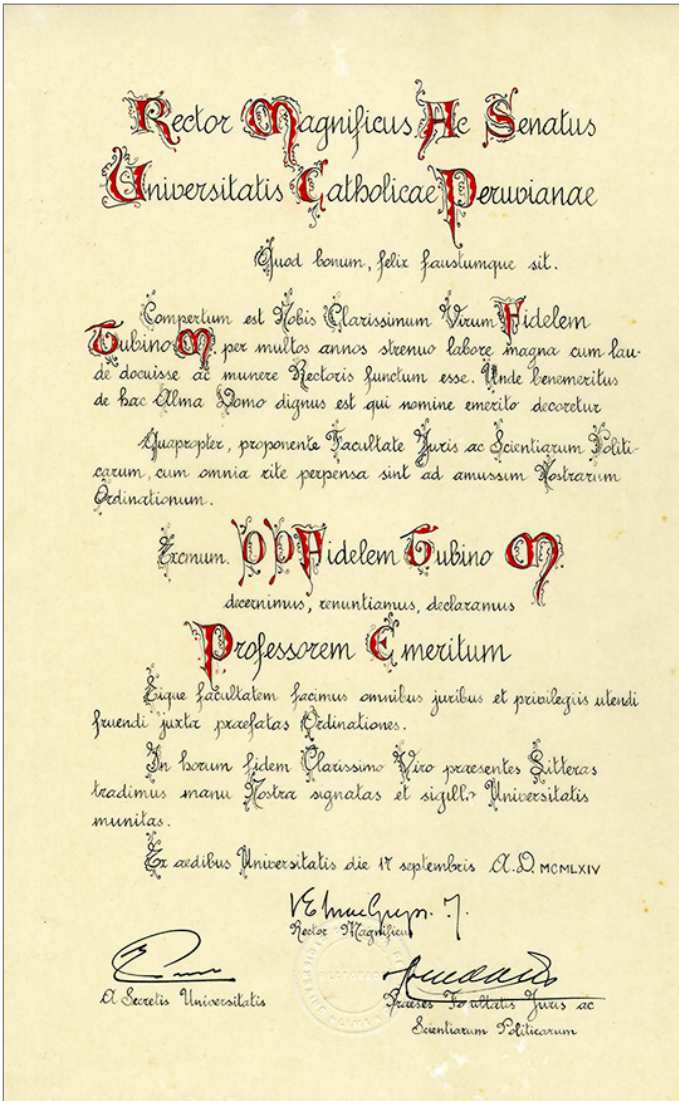 Rector Magnificus Ac Senatus
Universitatis Catholicae Peruvianae
Quod bonum, felix faustumque sit.
Compertum est Nobis Clarissimum Virum Fidelem
Tubino M. per multos annos strenuo labore magna cum lau-
de docuisse ac munere Rectoris functum esse. Unde benemeritus
de hac Alma Domo dignus est qui nomine emerito decoretur
Quapropter, proponente Facultate Juris ac Scientiarum Politi-
carum, cum omnia rite perpensa sint ad amussim Nostrarum
Ordinationum.
Excmum. DD Fidelem Tubino M
decernimus, renuntiamus, declaramus
Professorem Emeritum
Eique facultatem facimus omnibus juribus et privilegiis utendi
fruendi juxta praefatas Ordinationes.
In horum fidem Clarissimo Viro praesentes Litteras
tradimus manu Nostra signatas et sigillo Universitatis
munitas.
Ex aedibus Universitatis die 17 septembris A.D. MCMLXIV
Rector Magnificus
A Secretis Universitatis
Praeses Facultatis Juris ac
Scientiarum Politicarum